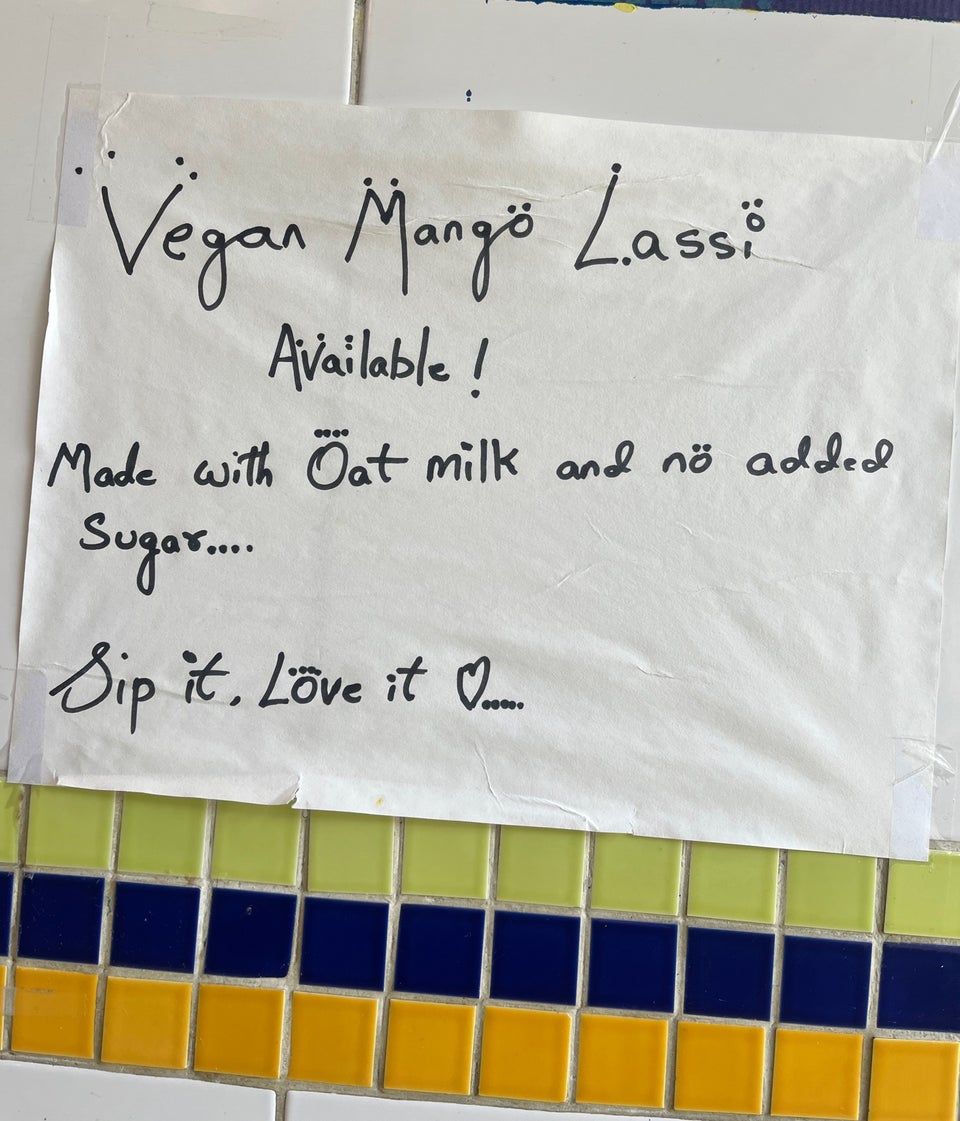 Vegan Mangö Lassi
Available!
Made with Öat milk and nö added
Sugar....
Sip it, Löve it ♡.....